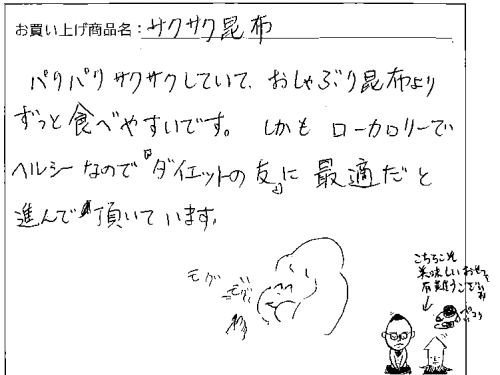 お買い上げ商品名：サクサク昆布
パリパリサクサクしていて、おしゃぶり昆布より
ずっと食べやすいです。しかもローカロリーで
ヘルシーなので『ダイエットの友』に最適だと
進んで頂いています。
モグ
モグ
こちらこそ
美味しいおせ
有難うござい
ペコリ